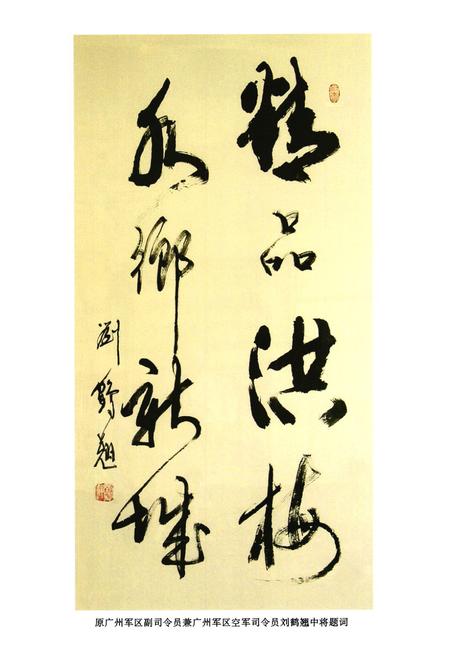 精品洪梅
水鄉新城
劉鹤翘
原广州军区副司令员兼广州军区空军司令员刘鹤翘中将题词